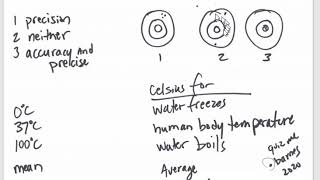 1 precision
2 neither
3 accuracy And precise
1 2 3
Celsius for
0°C water freezes
37°C human body temperature
100°C water boils
mean Average
quiz me
barnes
2020